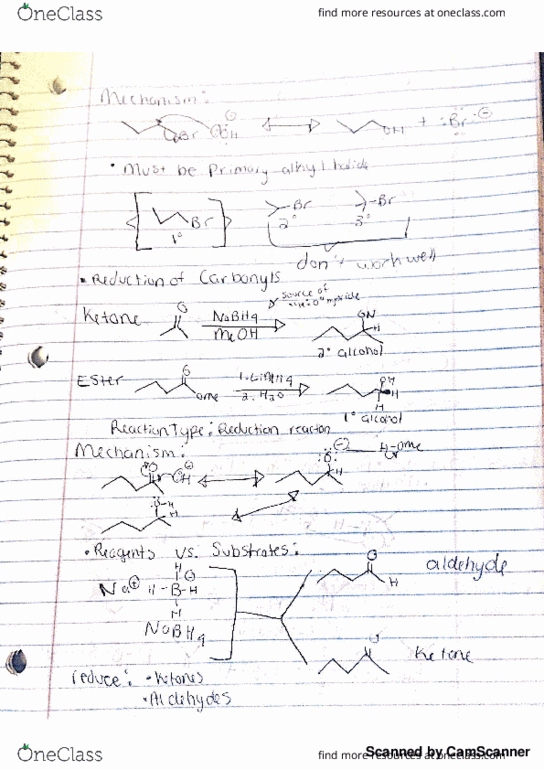 OneClass
find more resources at oneclass.com
Mechanism:
Br OH ⊖ OH + :Br: ⊖
• Must be primary alkyl halide
Br Br Br
1° 2° 3°
don't work well
• Reduction of Carbonyls
source of
Ketone O NaBH4 H
MeOH
2° alcohol
Ester OMe 1. LiAlH4 OH
2. H2O H
1° alcohol
Reaction Type: Reduction reaction
Mechanism:
• Reagents vs. Substrates:
H O aldehyde
Na⊕ H-B-H ⊖ H
H
NaBH4
Ketone
reduce: • Ketones
• Aldehydes
OneClass
find more resources at oneclass.com
Scanned by CamScanner